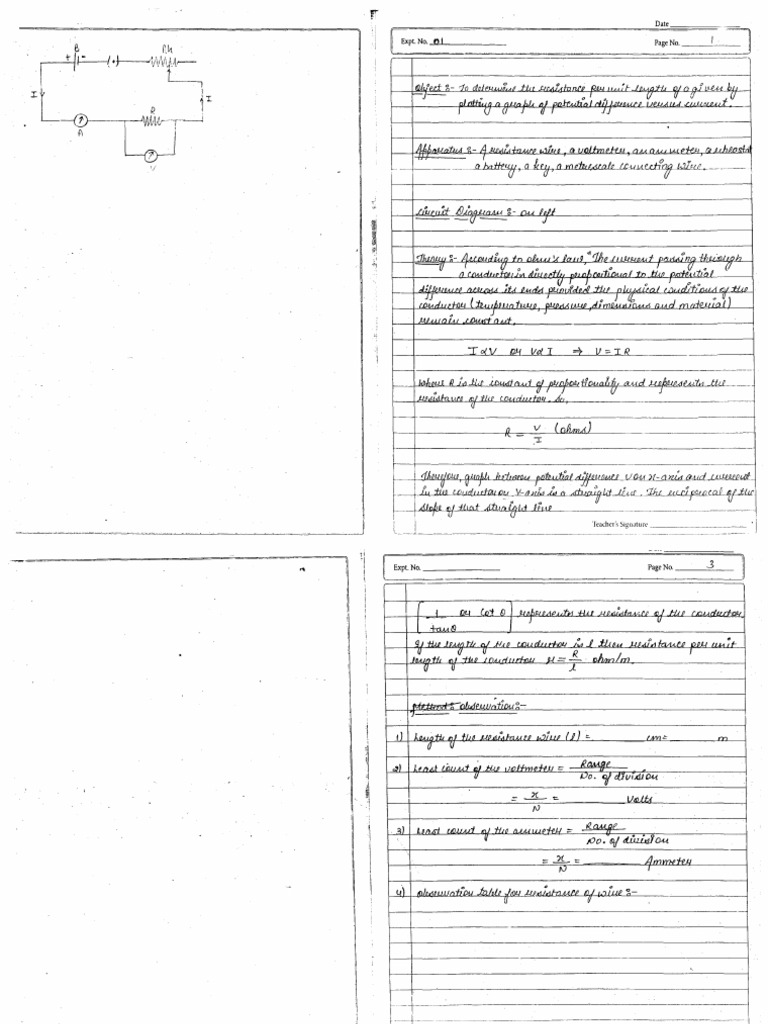 B
+ -
(•)
Rh
I
I
R
A
V
Date
Expt. No. 01
Page No. 1
Object :- To determine the resistance per unit length of a given by
plotting a graph of potential difference versus current.
Apparatus :- A resistance wire, a voltmeter, an ammeter, a rheostat
a battery, a key, a metrescale connecting wire.
Circuit Diagram :- on left
Theory :- According to ohm's law, "The current passing through
a conductor is directly propotional to the potential
difference across its ends provided the physical conditions of the
conductor (temperature, pressure, dimensions and material)
remain constant.
I ∝ V or V ∝ I ⇒ V = I R
where R is the constant of proportionality and represents the
resistance of the conductor. So,
R = V/I (ohms)
Therefore, graph between potential difference V on X-axis and current
in the conductor on Y-axis is a straight line. The reciprocal of the
slope of that straight line
Teacher's Signature
Expt. No.
Page No. 3
[1/tanθ or Cot θ] represents the resistance of the conductor.
If the length of the conductor is l then resistance per unit
length of the conductor r = R/l ohm/m.
observation :-
1) Length of the resistance wire (l) = ______ cm = ______ m
2) Least count of the voltmeter = Range/No. of division
= x/N = ______ Volts
3) Least count of the ammeter = Range/No. of division
= x/N = ______ Ammeter
4) Observation table for resistance of wire :-